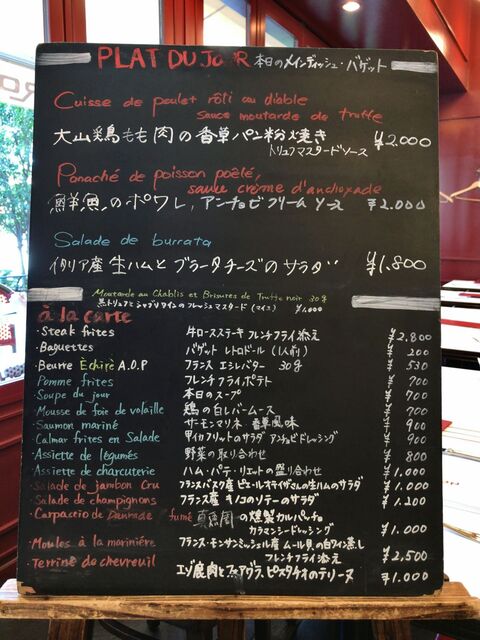 PLAT DU JOUR 本日のメインディッシュ・バゲット
Cuisse de poulet rôti au diable
sauce moutarde de truffe
大山鶏もも肉の香草パン粉焼き ¥2,000
トリュフマスタードソース
Panaché de poisson poêlé,
sauce crème d'anchoyade
鮮魚のポワレ, アンチョビクリームソース ¥2,000
Salade de burrata
イタリア産生ハムとブラータチーズのサラダ ¥1,800
Moutarde au Chablis et Brisures de Truffe noir 30g
黒トリュフとシャブリワインのフレッシュマスタード (マイユ) ¥1,000
à la carte
・Steak frites 牛ロースステーキ フレンチフライ添え ¥2,800
・Baguettes バゲット レトロドール (1人前) ¥200
・Beurre Èchirè A.O.P フランス エシレバター 30g ¥530
Pomme frites フレンチフライポテト ¥700
Soupe du jour 本日のスープ ¥700
・Mousse de foie de volaille 鶏の白レバームース ¥700
Saumon mariné サーモンマリネ 香草風味 ¥900
・Calmar frites en Salade 甲イカフリットのサラダ アンチョビドレッシング ¥900
・Assiette de légumes 野菜の取り合わせ ¥800
・Assiette de charcuterie ハム・パテ・リエットの盛り合わせ ¥1,000
・Salade de jambon Cru フランスバスク産ピエールオテイザさんの生ハムのサラダ ¥1,000
・Salade de champignons フランス産 キノコのソテーのサラダ ¥1,200
・Carpaccio de Daurade fumé 真鯛の燻製カルパッチョ
カラマンシードレッシング ¥1,000
・Moules à la marinière フランス・モンサンミッシェル産 ムール貝の白ワイン蒸し
フレンチフライ添え ¥2,500
・Terrine de chevreuil エゾ鹿肉とフォアグラ、ピスタチオのテリーヌ ¥1,000